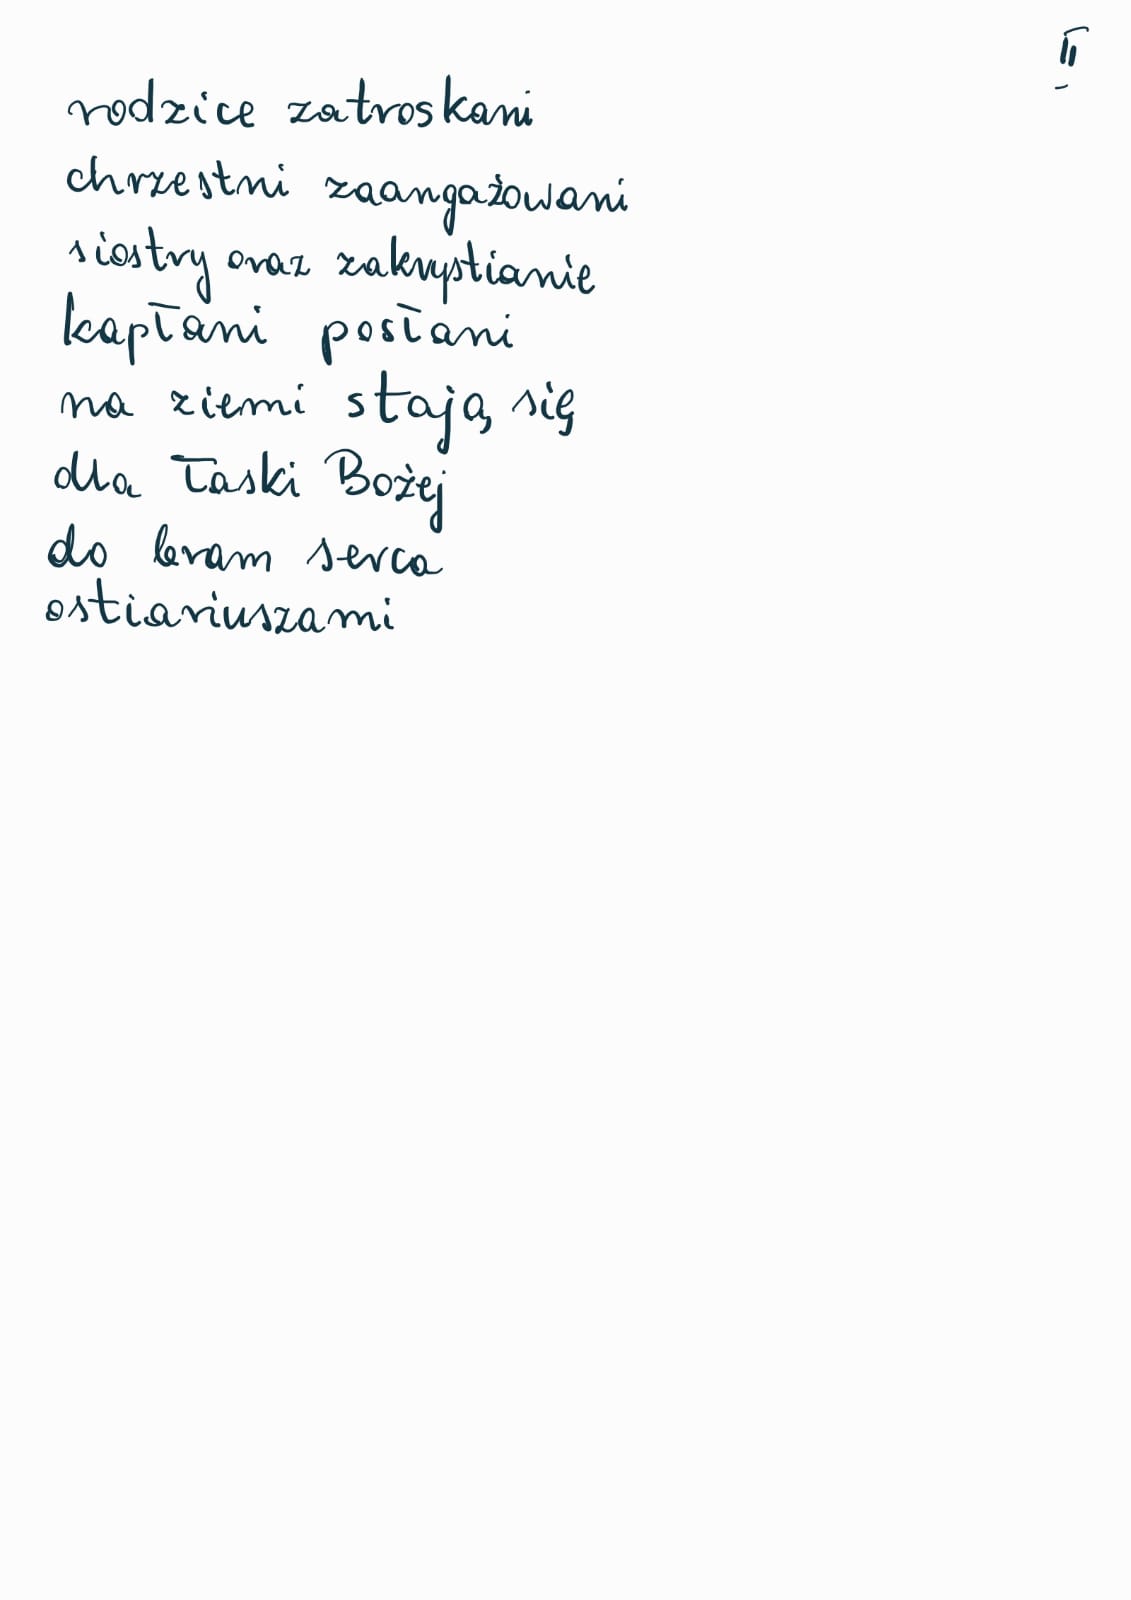 II
rodzice zatroskani
chrzestni zaangażowani
siostry oraz zakrystianie
kapłani posłani
na ziemi stają się
dla łaski Bożej
do bram serca
ostiariuszami